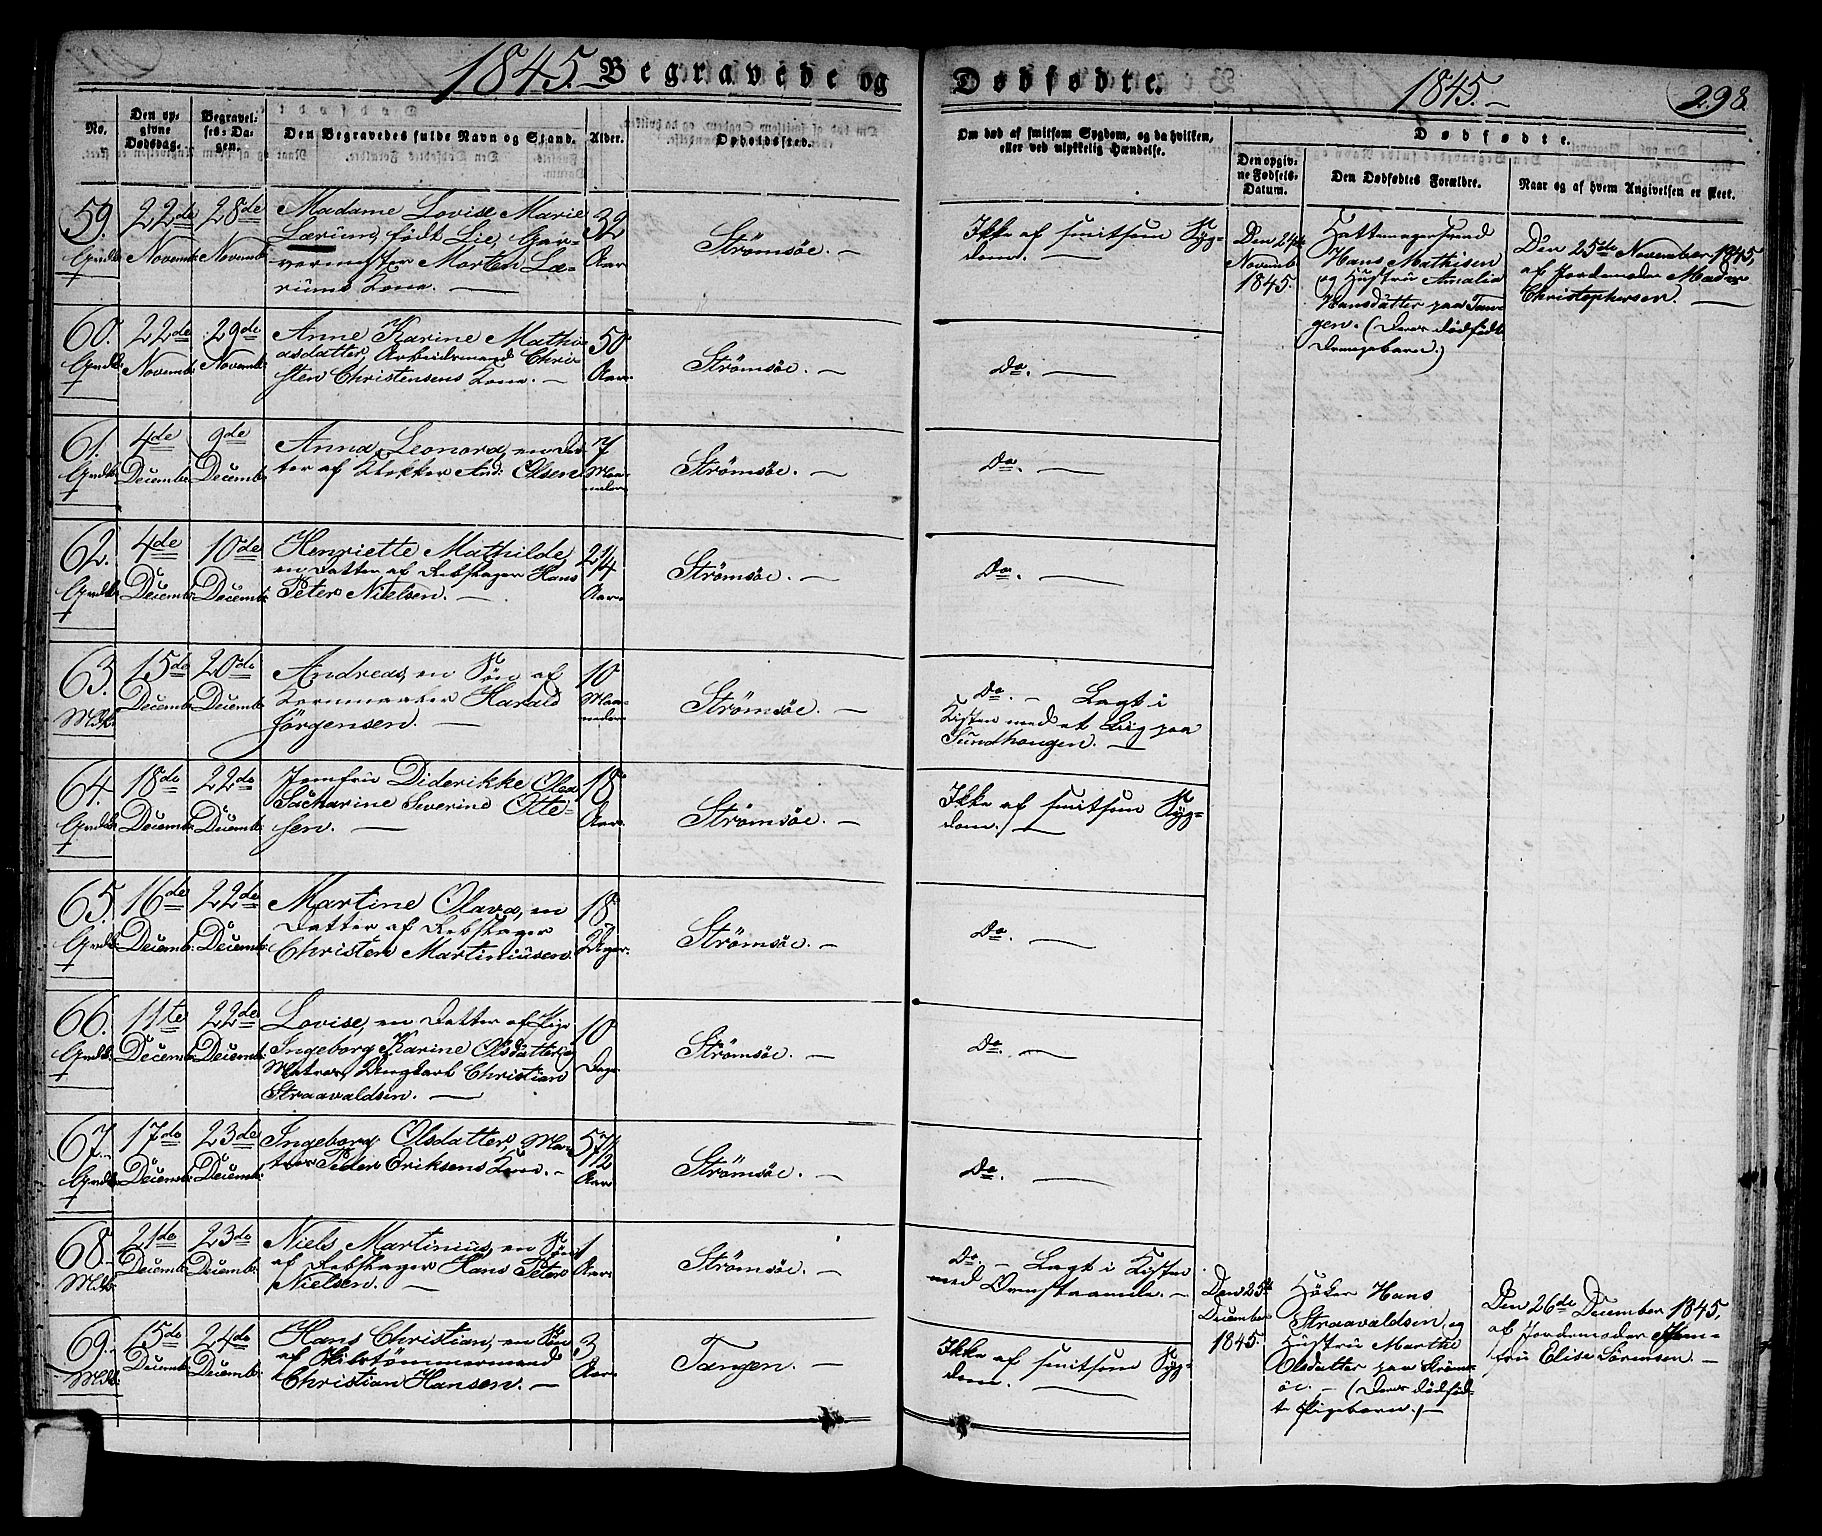 1845. Begravede og Dødfødte. 1845.— 298.
No.
Den op-
givne
Dødsdag.
Begravel-
ses-Da-
gen.
Den Begravedes fulde Navn og Stand.
Alder.
Opholdssted.
Om død af smitsom Sygdom, og da hvilken,
eller ved ulykkelig Hændelse.
Dødfødte.
Den opgiv-
ne Fødsels-
Datum.
Den Dødfødtes Forældre.
Naar og af hvem Angivelsen er skeet.
59.
22de
Novemb:
28de
Novemb:
Madame Lovise Marie
Lærum, født Lie, Gar-
vermester Morten Læ-
rums Kone. —
32
Aar
Strömsöe. —
Ikke af smitsom Syg-
dom. —
Den 24de
Novemb:
1845.
Hattemagersvend
Hans Mathisen
og Hustru Amalia
Hansdatter paa Tan-
gen. (Deres dødfødte
Drengebarn.)
Den 25de November 1845,
af Jordemoder Madm
Christophersen. —
60.
22de
Novemb:
29de
Novemb:
Anne Karine Mathi-
asdatter, Arbeidsmand Chri-
sten Christensens Kone. —
50
Aar.
Strömsöe. —
Do. —
61.
4de
Decembr
9de
Decemb:
Anna Leonora, en Dat-
ter af Klokker And: Olsen
7
Maa-
neder
Strömsöe. —
Do. —
62.
4de
Decemb:
10de
Decemb:
Henriette Mathilde,
en Datter af Rebslager Hans
Peter Nielsen. —
2 1/4
Aar.
Strömsöe. —
Do. —
63.
15de
Decemb:
20de
Decemb:
Andreas, en Søn af
Kornmaaler Harald
Jørgensen. —
10
Maa-
neder
Strömsöe. —
Do. — Lagt i
Kisten med et Liig paa
Sundhougen. —
64.
18de
Decemb:
22de
Decemb:
Jomfru Diderikke Olea
Sacharine Severine Otte-
sen. —
18
Aar.
Strömsöe. —
Ikke af smitsom Syg-
dom. —
65.
16de
Decemb:
22de
Decemb:
Martine Olava, en
Datter af Rebslager
Christen Martiniusen.
18
Uger.
Strömsöe. —
Do. —
66.
11te
Decemb:
22de
Decemb:
Lovise, en Datter af Pige
Ingeborg Karine Olsdatter og
Matros, Ungkarl Christian
Straavaldsen. —
10
Dage
Strömsöe. —
Do. —
67.
17de
Decemb:
23de
Decemb:
Ingeborg Olsdatter, Ma-
tros Peder Eriksens Kone. —
57 1/2
Aar.
Strömsöe. —
Do. —
68.
21de
Decemb:
23de
Decemb:
Niels Martinius, en Søn
af Rebslager Hans Peter
Nielsen. —
1
Aar.
Strömsöe. —
Do. — Lagt i Kisten
med —
Den 25de
Decembr
1845.
Høker Hans
Straavaldsen, og
Hustru Marthe
Olsdatter paa Strøms-
öe. — (Deres dødfød-
te Pigebarn.) —
Den 26de December 1845,
af Jordemoder Jom-
fru Elise Sørensen. —
69.
15de
Decemb:
24de
Decemb:
Hans Christian, en Søn
af Huustømmermand
Christian Hansen. —
3
Aar.
Tangen. —
Ikke af smitsom Syg-
dom. —